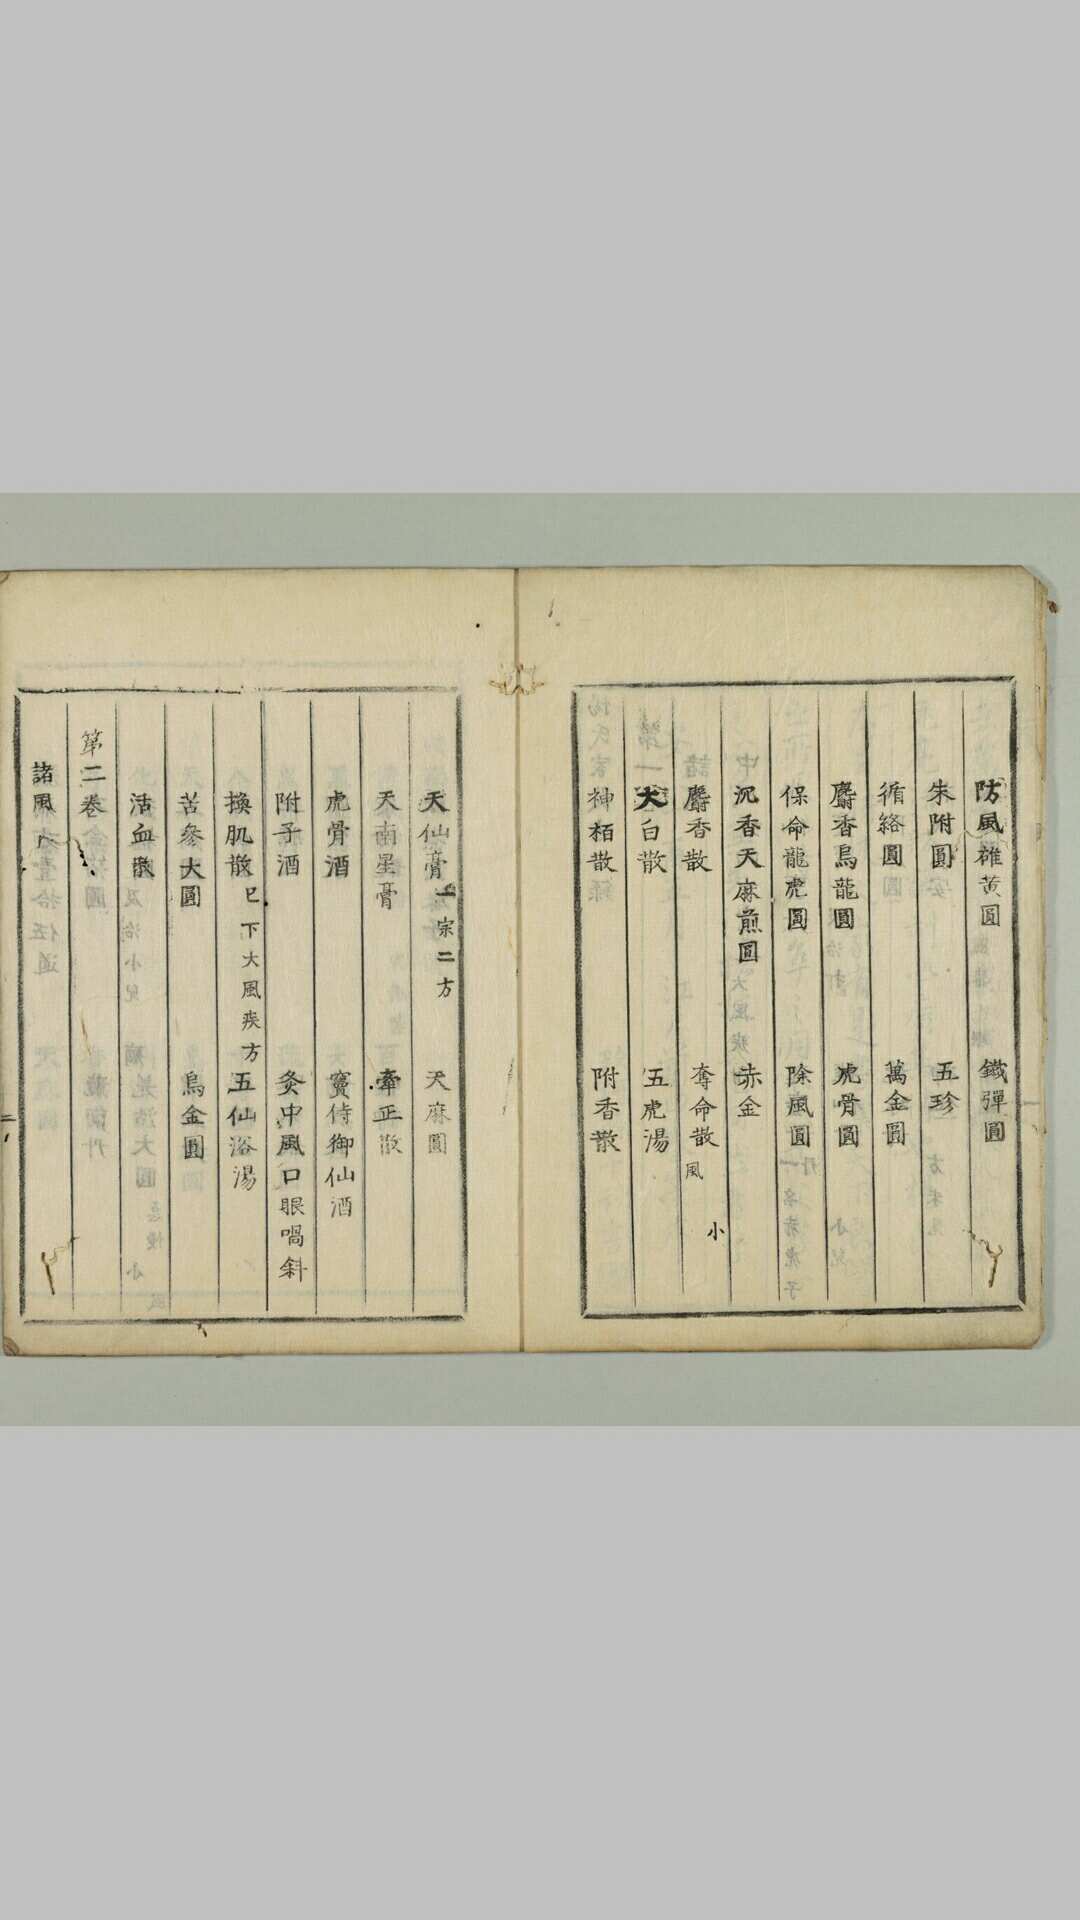 防風雄黃圓 鐵彈圓
朱附圓 五珍
循絡圓 萬金圓
麝香烏龍圓 虎骨圓
保命龍虎圓 除風圓
沉香天麻煎圓 赤金
麝香散 奪命散 小風
大白散 五虎湯
神栢散 附香散
天仙膏 一宗二方 天麻圓
天南星膏 牽正散
虎骨酒 竇侍御仙酒
附子酒 灸中風口眼喎斜
換肌散 已下大風疾方 五仙浴湯
苦參大圓 烏金圓
活血散
第二卷
諸風
二